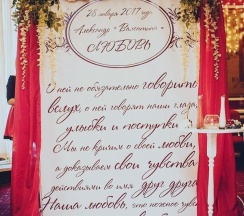 28 января 2017 год
Александр + Валентина =
ЛЮБОВЬ
О ней не обязательно говорить
вслух, о ней говорят наши глаза,
улыбки и поступки...
Мы не кричим о своей любви,
а доказываем свои чувства
действиями во имя друг друга.
Наша любовь, это нежное чувство